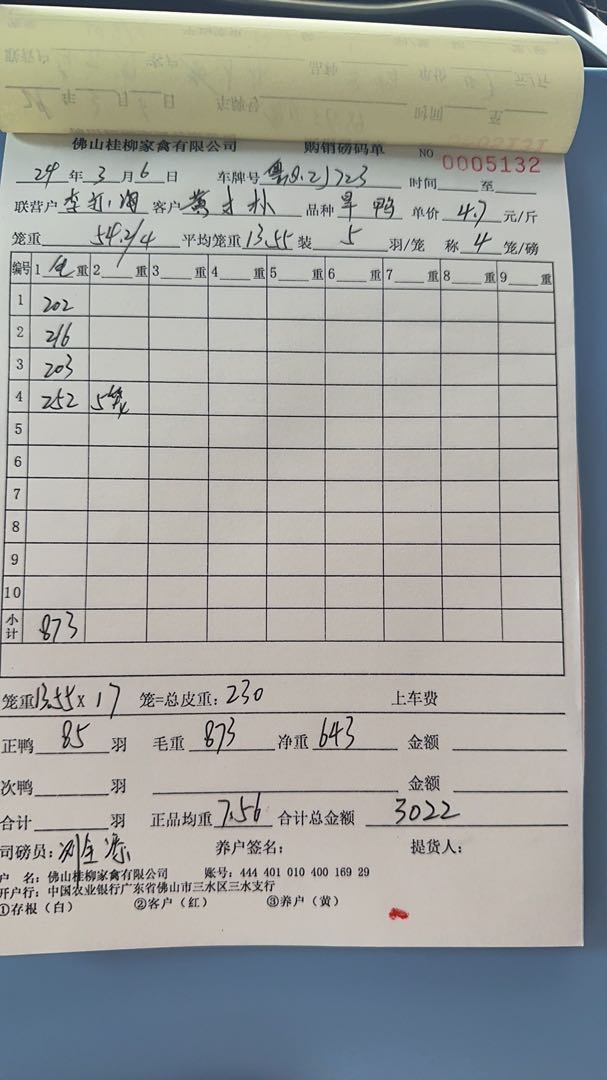 佛山桂柳家禽有限公司 购销磅码单 NO 0005132
24 年 3 月 6 日 车牌号 时间 至
联营户 客户 黄才朴 品种 旱鸭 单价 4.7 元/斤
笼重 54.2/4 平均笼重 13.55 装 5 羽/笼 称 4 笼/磅
编号 1 重 2 重 3 重 4 重 5 重 6 重 7 重 8 重 9 重
1 202
2 216
3 203
4 252 5笼
5
6
7
8
9
10
小计 873
笼重 13.55 X 17 笼=总皮重: 230 上车费
正鸭 85 羽 毛重 873 净重 643 金额
次鸭 羽 金额
合计 羽 正品均重 7.56 合计总金额 3022
司磅员: 养户签名: 提货人:
户 名: 佛山桂柳家禽有限公司 账号: 444 401 010 400 169 29
开户行: 中国农业银行广东省佛山市三水区三水支行
①存根（白） ②客户（红） ③养户（黄）